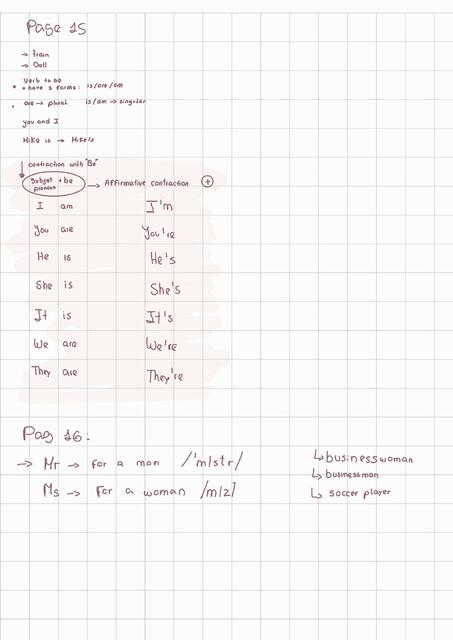 Page 15
→ Train
→ Doll
Verb to be
• → have 3 forms: is/are/am
• are → plural is/am → singular
you and I
Mike is → Mike's
contraction with "Be"
Subject + be
pronoun
→ Affirmative contraction +
I am I'm
You are You're
He is He's
She is She's
It is It's
We are We're
They are They're
Pag 16:
→ Mr → for a man /'mIstr/
Ms → For a woman /mIz/
↳ businesswoman
↳ businessman
↳ soccer player